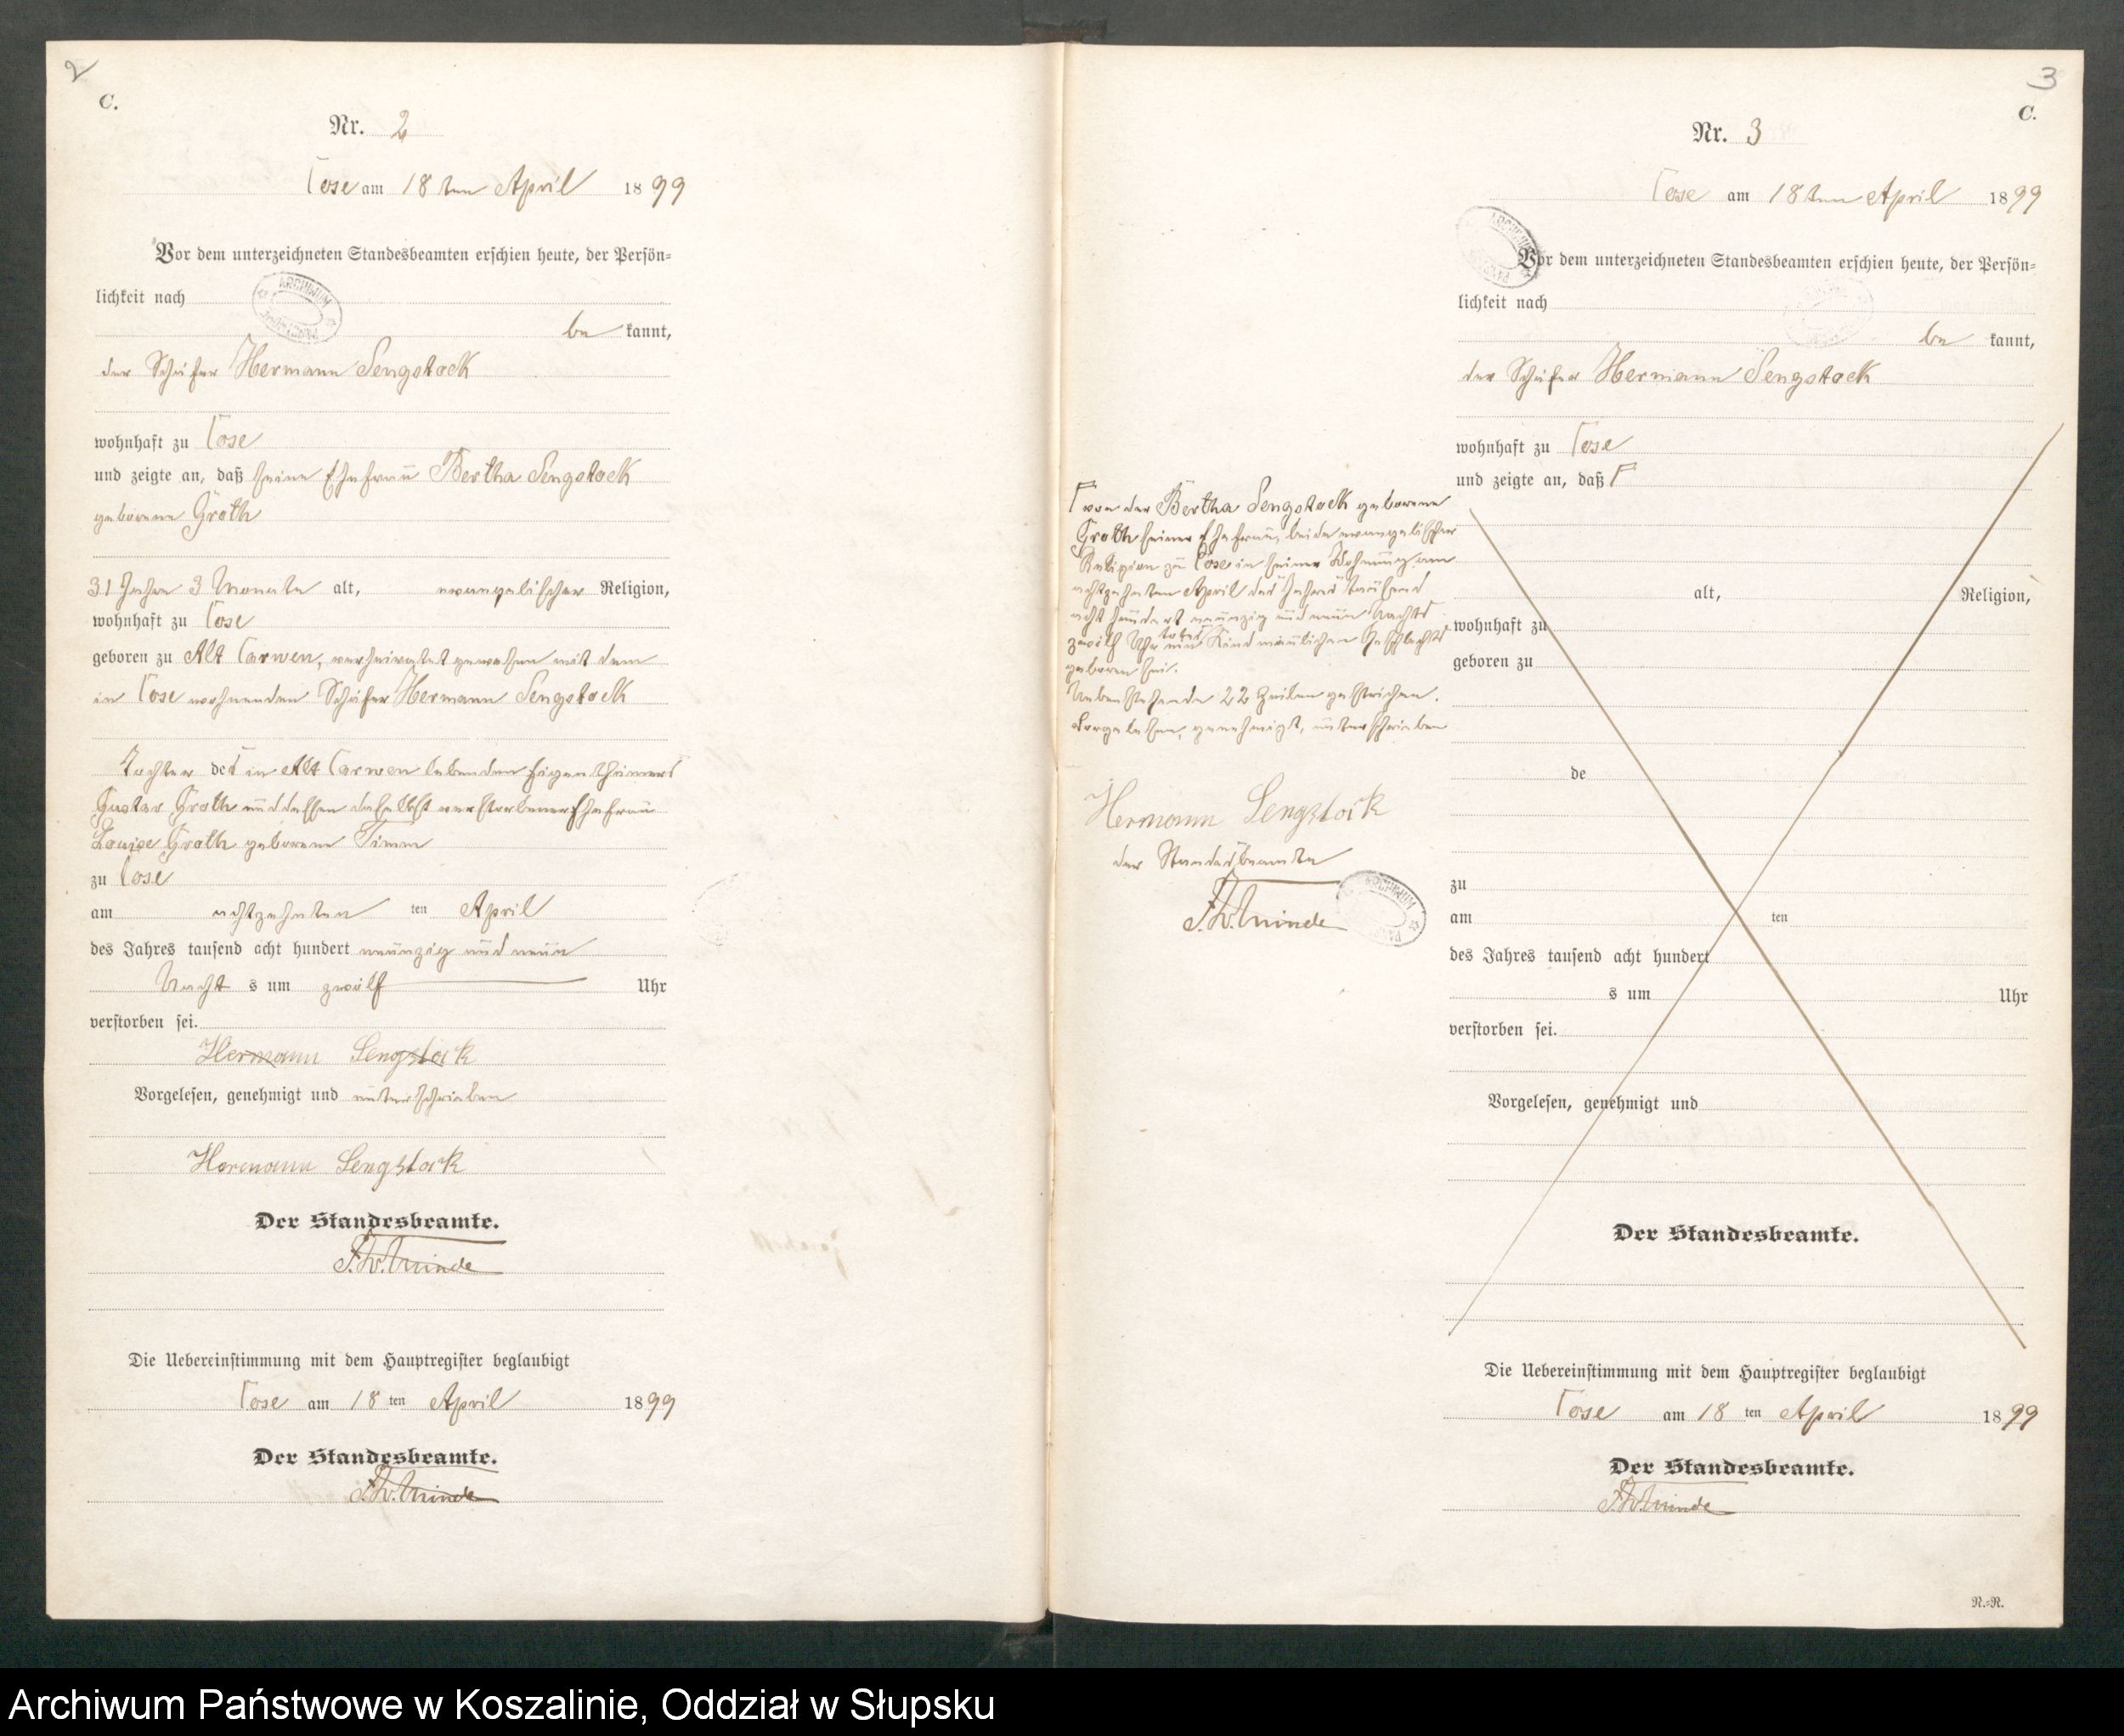 2
C.
Nr. 2
Cose am 18ten April 1899
Vor dem unterzeichneten Standesbeamten erschien heute, der Persön-
lichkeit nach
be kannt,
der Schäfer Hermann Sengstock
wohnhaft zu Cose
und zeigte an, daß seine Ehefrau Bertha Sengstock
geborene Groth
31 Jahre 3 Monate alt, evangelischer Religion,
wohnhaft zu Cose
geboren zu Alt Carwen, verheiratet gewesen mit dem
in Cose wohnenden Schäfer Hermann Sengstock
Tochter des in Alt Carwen lebenden Eigenthümers
Gustav Groth und dessen daselbst verstorbener Ehefrau
Louise Groth geborene Timm
zu Cose
am achtzehnten ten April
des Jahres tausend acht hundert neunzig und neun
Nacht s um zwölf Uhr
verstorben sei.
Hermann Sengstock
Vorgelesen, genehmigt und unterschrieben
Hermann Sengstock
Der Standesbeamte.
Die Uebereinstimmung mit dem Hauptregister beglaubigt
Cose am 18 ten April 1899
Der Standesbeamte.
3
C.
Nr. 3
Cose am 18ten April 1899
Vor dem unterzeichneten Standesbeamten erschien heute, der Persön-
lichkeit nach
be kannt,
der Schäfer Hermann Sengstock
wohnhaft zu Cose
und zeigte an, daß
von der Bertha Sengstock geborene
Groth seiner Ehefrau, beide evangelischer
Religion zu Cose in seiner Wohnung am
achtzehnten April des Jahres tausend
acht hundert neunzig und neun Nachts
zwölf Uhr ein totes Kind männlichen Geschlechts
geboren sei.
Nebenstehende 22 Zeilen gestrichen.
Vorgelesen, genehmigt, unterschrieben
Hermann Sengstock
der Standesbeamte
alt, Religion,
wohnhaft zu
geboren zu
de
zu
am ten
des Jahres tausend acht hundert
s um Uhr
verstorben sei.
Vorgelesen, genehmigt und
Der Standesbeamte.
Die Uebereinstimmung mit dem Hauptregister beglaubigt
Cose am 18 ten April 1899
Der Standesbeamte.
R.-R.
Archiwum Państwowe w Koszalinie, Oddział w Słupsku